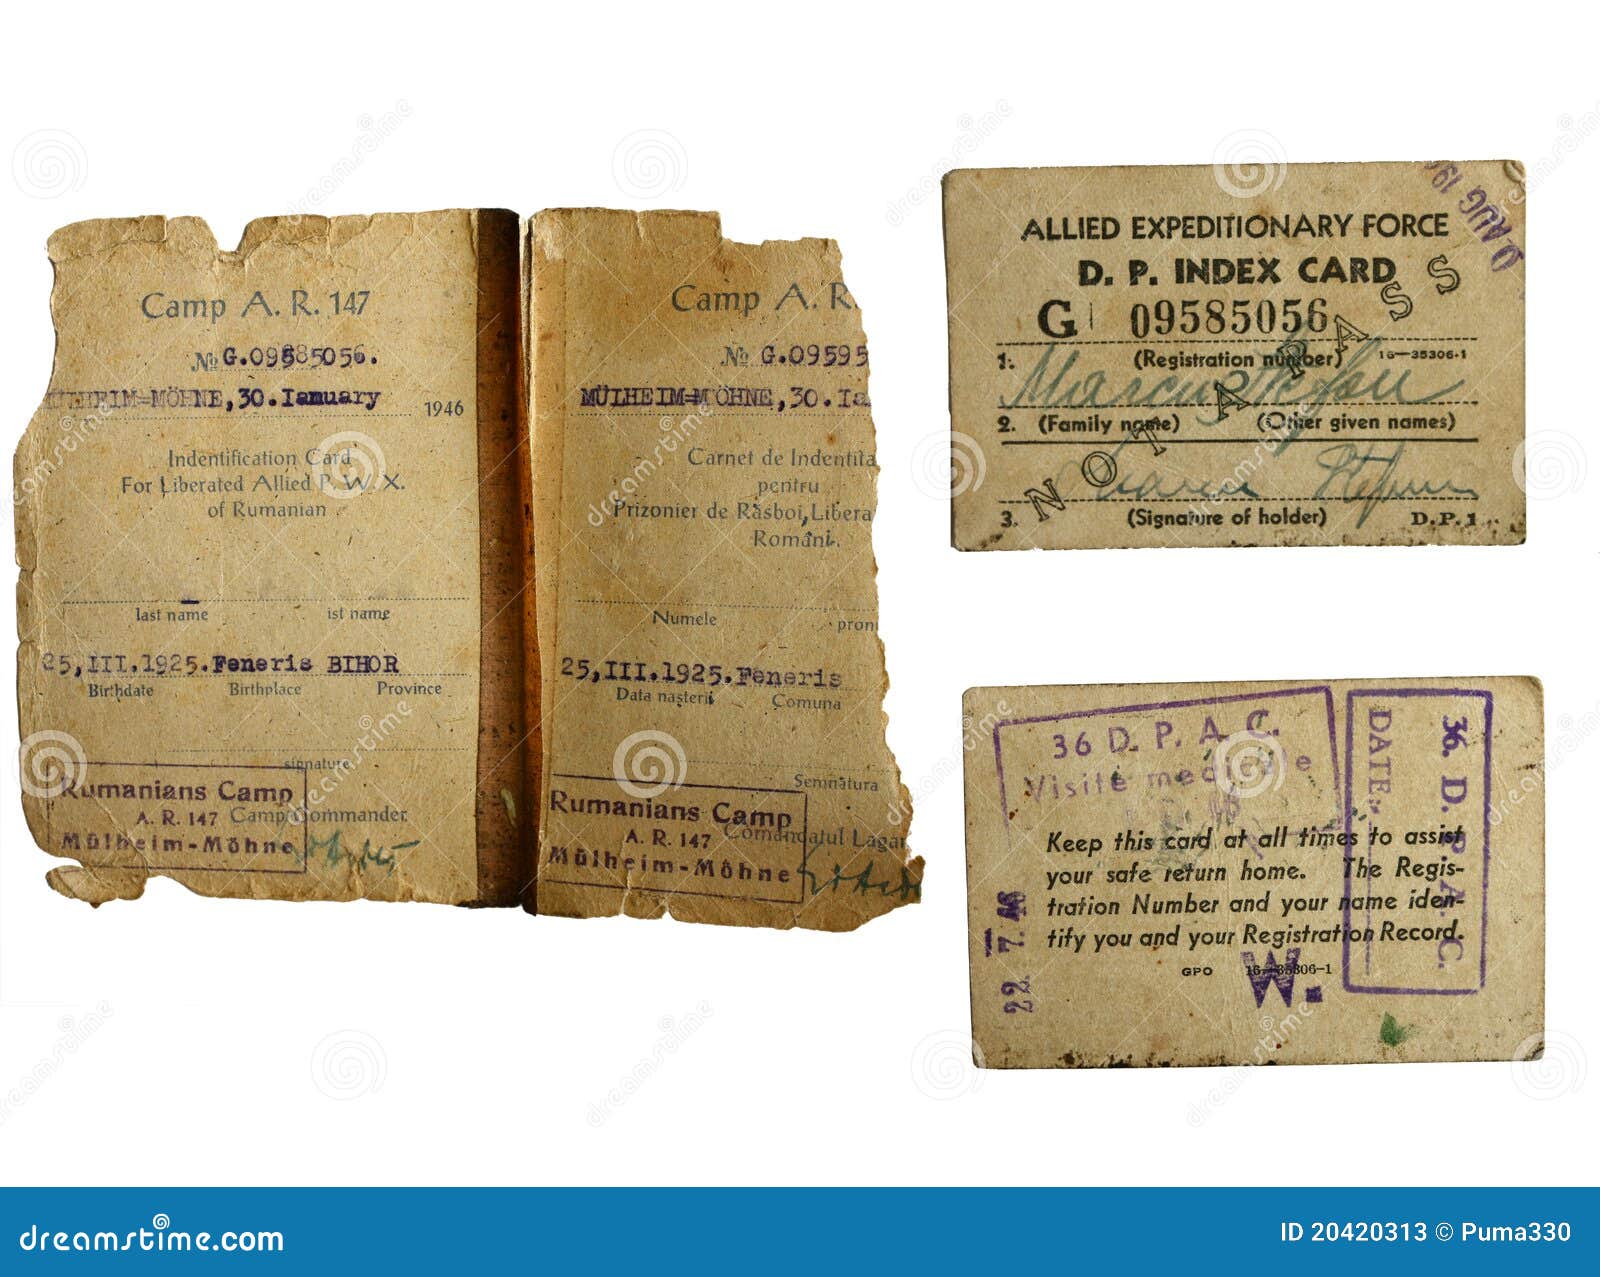 Camp A. R. 147
№ G.09585056.
MÖHNE,30.Ianuary 1946
Indentification Card
For Liberated Allied P. W. X.
of Rumanian
last name ist name
25,III.1925.Feneris BIHOR
Birthdate Birthplace Province
signature
Rumanians Camp
A. R. 147
Mülheim-Möhne
Camp Commander
Camp A. R.
№ G.09595
MÜLHEIM-MÖHNE,30.Ia
Carnet de Indentita
pentru
Prizonier de Răsboi, Libera
Români.
Numele pron
25,III.1925.Feneris
Data nașterii Comuna
Semnătura
Rumanians Camp
A. R. 147
Mülheim-Möhne
Comandatul Lagăr
AUG 19
ALLIED EXPEDITIONARY FORCE
D. P. INDEX CARD
G 09585056
1. (Registration number) 16—35306-1
Marcu
2. (Family name) (Other given names)
3. (Signature of holder) D.P.1
NOT A PASS
36 D. P. A. C.
Visite medicale
36. D. P. A. C.
DATE:
22.7.48
Keep this card at all times to assist
your safe return home. The Regis-
tration Number and your name iden-
tify you and your Registration Record.
GPO 16—35306-1
W.
dreamstime.com
ID 20420313 © Puma330